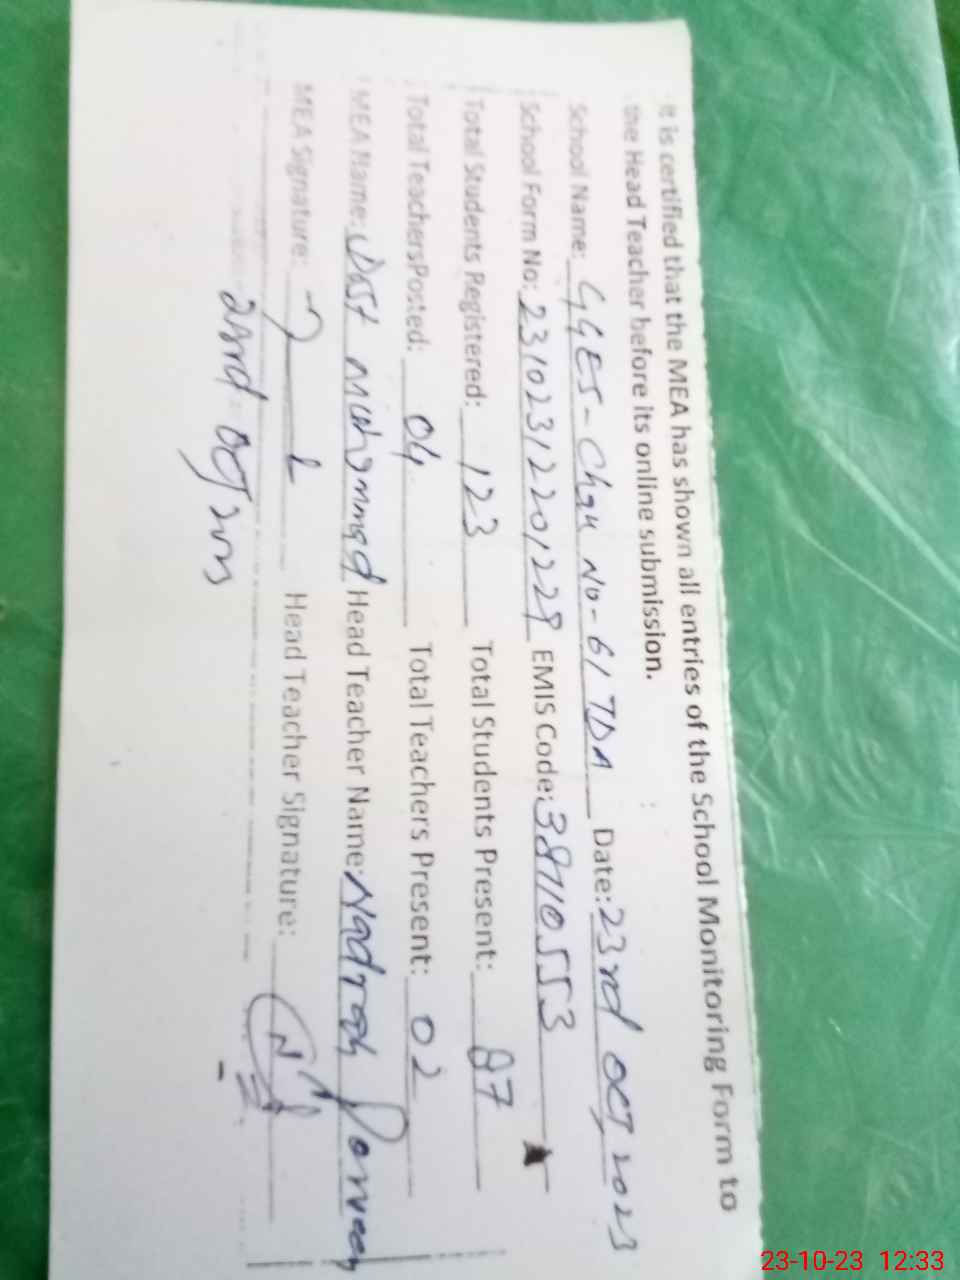 It is certified that the MEA has shown all entries of the School Monitoring Form to
the Head Teacher before its online submission.
School Name: GGES-Chak No-61 TDA Date: 23rd OCT 2023
School Form No: 23102312201229 EMIS Code: 38710553
Total Students Registered: 123 Total Students Present: 87
Total TeachersPosted: 04 Total Teachers Present: 02
MEA Name: Dost Muhammad Head Teacher Name: Parveen
MEA Signature: Head Teacher Signature:
23-10-23 12:33